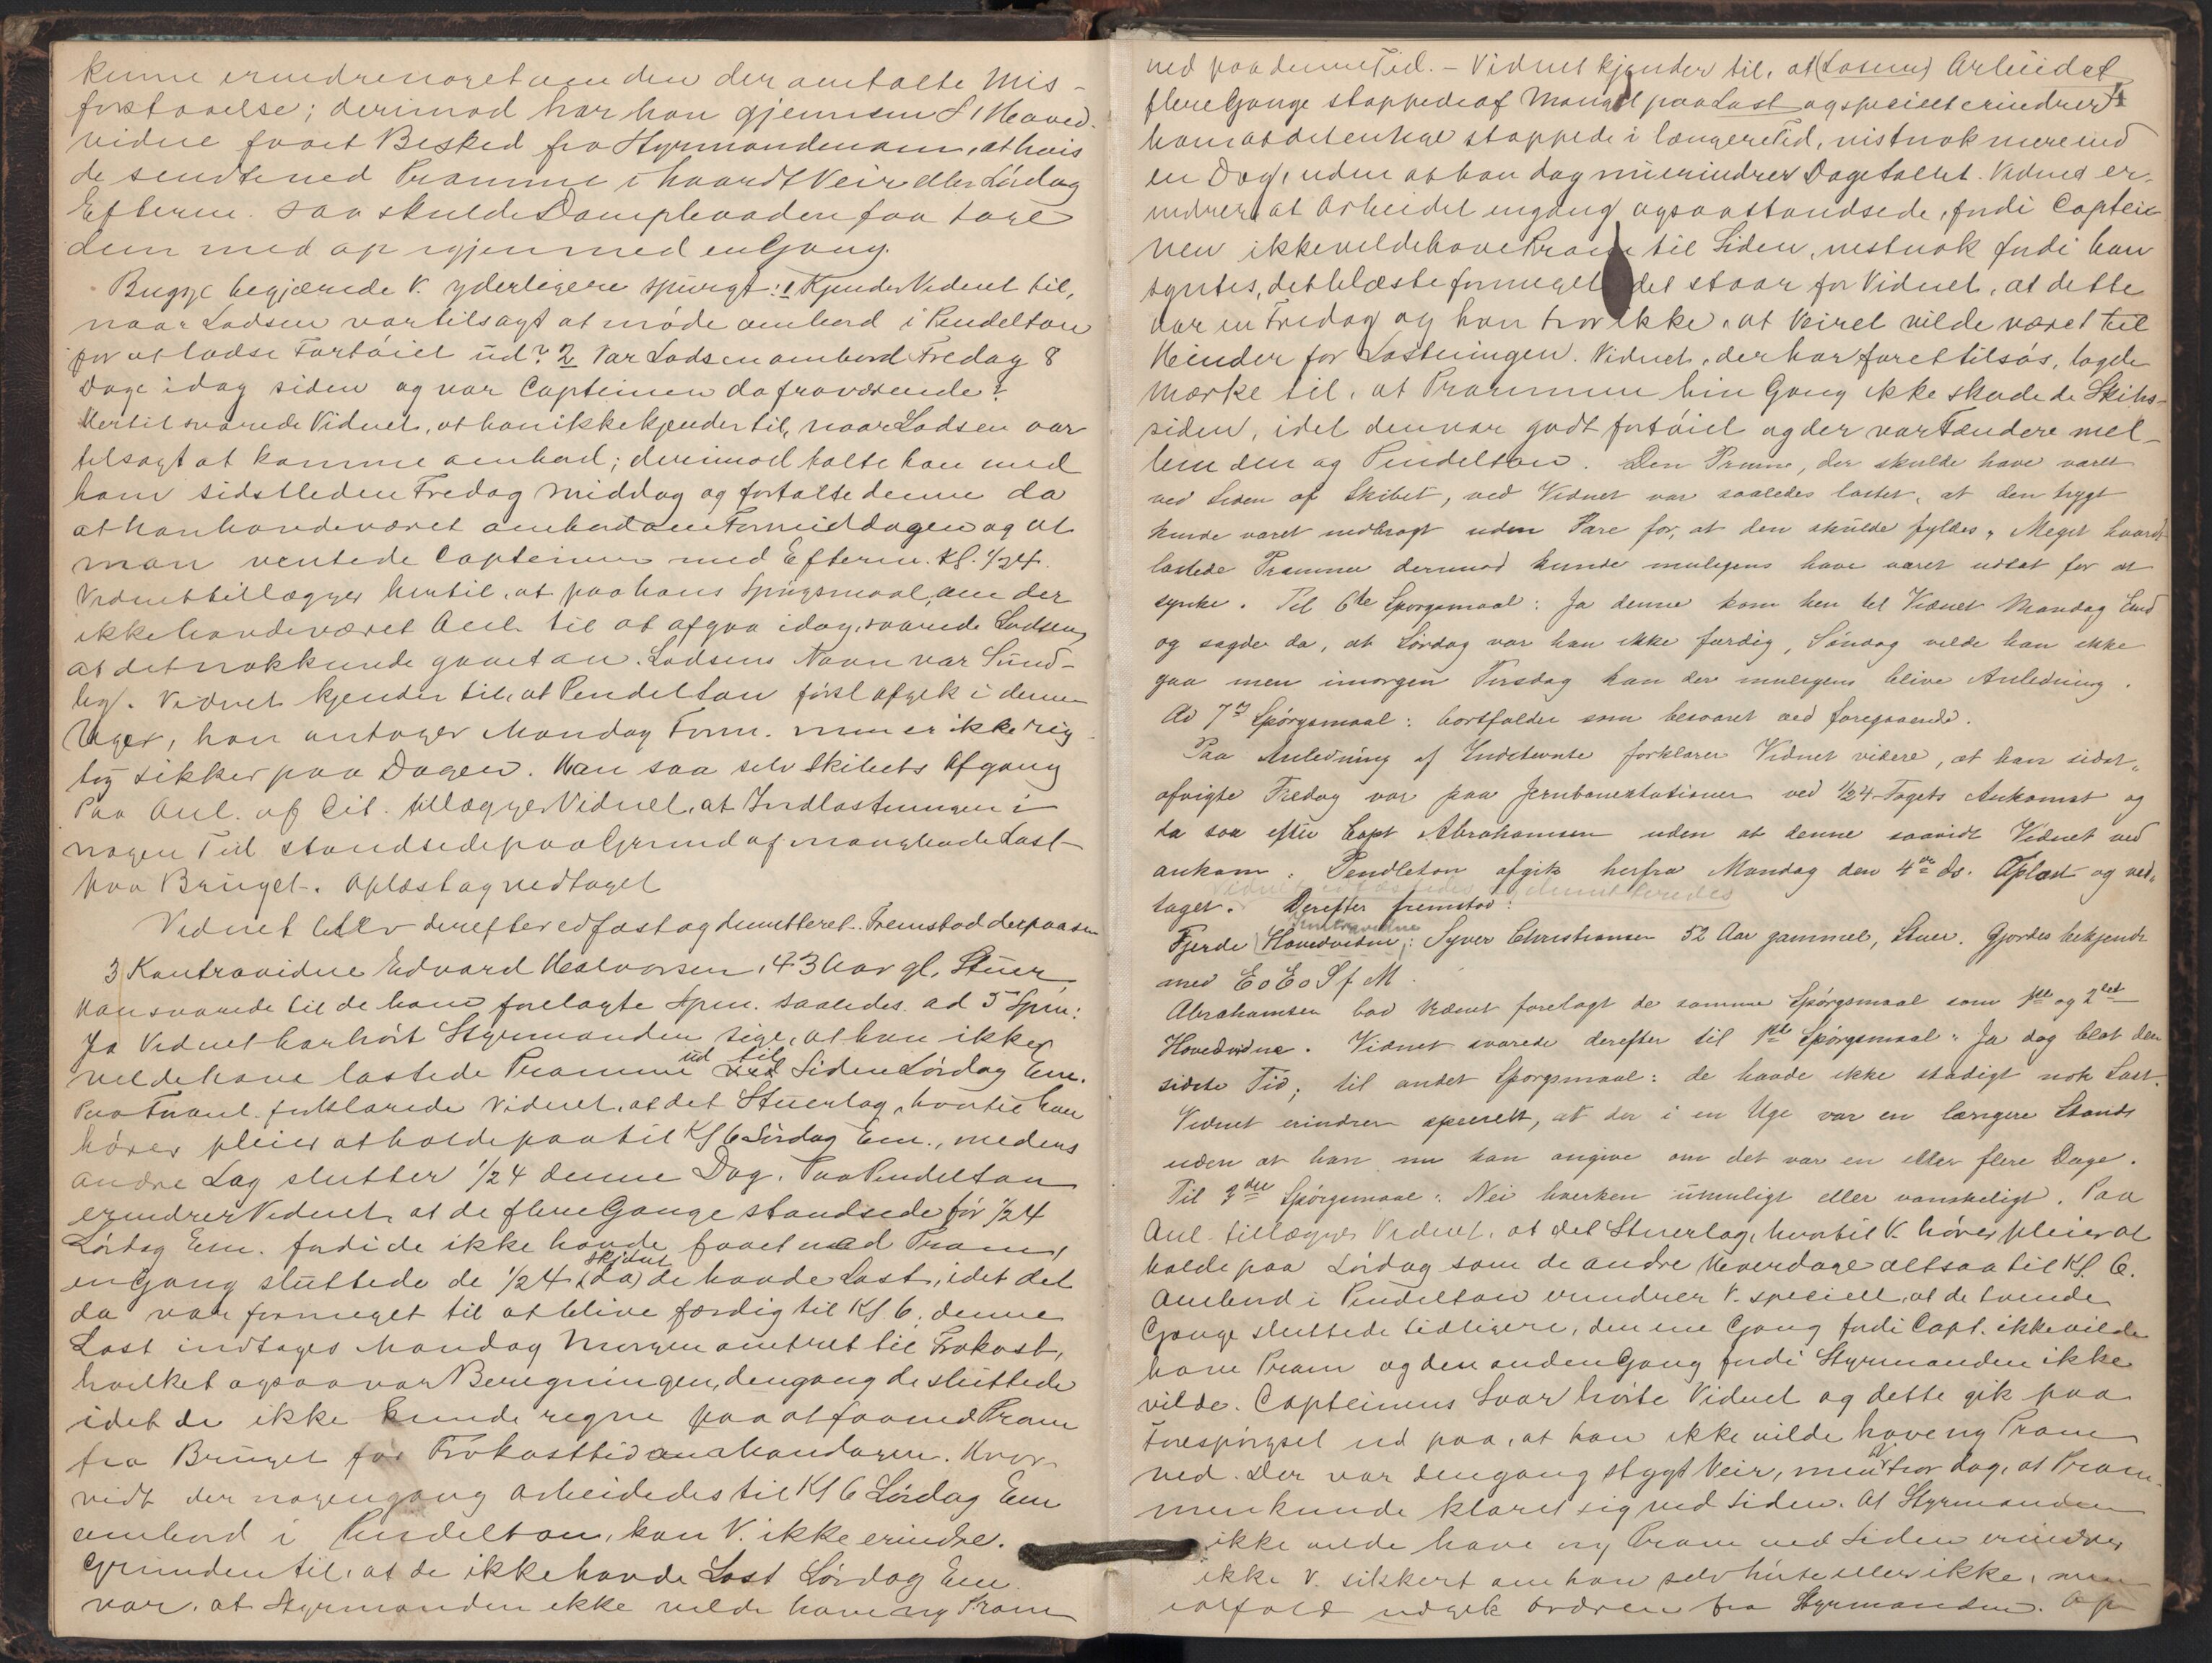 kunne erindre noget om den der omtalte Mis-
forstaaelse; derimod har han gjennem 1 Hoved-
vidne faaet Besked fra Styrmanden om, at hvis
de sendte ned Pramme i haardt Veir eller Lördag
Efterm. saa skulde Dampbaaden faa tage
dem med op igjen med engang.
Bugge begjærede V. yderligere spurgt: 1 Kjender Vidnet til,
naar Lodsen var tilsagt at möde ombord i Pendelton
for at lodse Fartöiet ud? 2 Var Lodsen ombord Fredag 8
Dage idag siden og var Capteinen da fraværende?
Hertil svarede Vidnet, at han ikke kjender til, naar Lodsen var
tilsagt at komme ombord; derimod talte han med
ham sidstleden Fredag Middag og fortalte denne da
at han havde været ombord om Formiddagen og at
man ventede Capteinen med Efterm. Kl. 1/24.
Vidnet tillægger hertil, at paa hans Spörgsmaal, om der
ikke havde været Anl. til at afgaa idag, svarede Lodsen,
at det nok kunde gaaet an. Lodsens Navn var Sund-
by. Vidnet kjender til, at Pendelton först afgik i denne
Uger, han antager Mandag Form. men er ikke rig-
tig sikker paa Dagen. Han saa selv Skibets Afgang
Paa Anl. af Cit. tillægger Vidnet, at Indlastningen i
nogen Tid standsede paa Grund af manglende Last
paa Bruget. Oplæst og vedtaget
Vidnet blev derefter edfæst og demitteret. Fremstod derpaa som
3 Kontravidne Edvard Halvorsen, 43 Aar gl, Stuer
Han svarede til de ham forelagte Spm. saaledes. ad 5 Spm:
Ja Vidnet har hört Styrmanden sige, at han ikke
vilde have lastede Pramme ud til Siden Lördag Em.
Paa Foranl. forklarede Vidnet, at det Stuerlag, hvortil han
hörer pleier at holde paa til Kl 6 Lördag Em., medens
andre Lag slutter 1/24 denne Dag. Paa Pendelton
erindrer Vidnet, at de flere Gange standsede för 1/24
Lördag Em. fordi de ikke havde faaet ned Pram,
en Gang sluttede de 1/24 (da) skjönt de havde Last, idet det
da var formeget til at blive færdig til Kl 6; denne
Last indtages Mandag Morgen omtrent til Frokost,
hvilket ogsaa var Beregningen, dengang de sluttede
idet de ikke kunde regne paa at faa ned Pram
fra Bruget för Frokosttid om Mandagen. Hvor-
vidt der nogengang arbeidedes til Kl 6 Lördag Em
ombord i Pendelton, kan V. ikke erindre.
Grunden til, at de ikke havde Last Lördag Em.
var, at Styrmanden ikke vilde have ny Pram
ned paa denne Tid. - Vidnet kjender til, at (Losning) Arbeidet
flere Gange stoppede af Mangel paa Last og specielt erindrer
han at det engang stoppede i længere Tid, vistnok mere end
en Dag, uden at han dog nu erindrer Dagetallet. Vidnet er-
indrer at Arbeidet engang ogsaa standsede, fordi Captei-
nen ikke vilde have Pram til Siden, vistnok fordi han
syntes, det blæste for meget det staar for Vidnet, at dette
var en Fredag og han tror ikke, at Veiret vilde været til
Hinder for Lastningen. Vidnet, der har faret tilsös, lagde
Mærke til, at Prammen hin Gang ikke skadede Skibs-
siden, idet den var godt fortöiet og der var Fendere mel-
lem den og Pendelton. Den Pram, der skulde have været
ved Siden af Skibet, ved Vidnet var saaledes lastet, at den trygt
kunde været nedbragt uden Fare for, at den skulde fyldes. Meget haardt
lastede Pramme derimod kunde muligens have været udsat for at
synke. Til 6te Spörgsmaal: Ja denne kom hen til Vidnet Mandag Em
og sagde da, at Lördag var han ikke færdig, Söndag vilde han ikke
gaa men imorgen Tirsdag kan der muligens blive Anledning.
Ad 7de Spörgsmaal: bortfalder som besvaret ved foregaaende.
Paa Anledning af Indstevnte forklarer Vidnet videre, at han sidst-
afvigte Fredag var paa Jernbanestationen ved 1/24-Togets Ankomst og
da saa efter Capt Abrahamsen uden at denne saavidt Vidnet ved
ankom. Pendleton afgik herfra Mandag den 4de ds. Oplæst og ved-
Vidnet edfæstedes demitteredes
taget. Derefter fremstod:
Fjerde Hovedvidne Kontravidne: Syver Christiansen 52 Aar gammel, Stuer. Gjordes bekjendt
med E o E o S f M.
Abrahamsen bad Vidnet forelagt de samme Spörgsmaal som 1ste og 2det
Hovedvidne. Vidnet svarede derefter til 1ste Spörgsmaal: Ja dog blot den
sidste Tid; til andet Spörgsmaal: de havde ikke stadigt nok Last.
Vidnet erindrer specielt, at der i en Uge var en længere Stands
uden at han nu kan angive om det var en eller flere Dage.
Til 3die Spörgsmaal: Nei hverken umuligt eller vanskeligt. Paa
Anl. tillægger Vidnet, at det Stuerlag, hvortil V. hörer pleier at
holde paa Lördag som de andre Hverdage altsaa til Kl. 6.
Ombord i Pendelton erindrer V. specielt, at de tvende
Gange sluttede tidligere, den ene Gang fordi Capt. ikke vilde
have Pram og den anden Gang fordi Styrmanden ikke
vilde. Capteinens Svar hörte Vidnet og dette gik paa
Forespörgsel ud paa, at han ikke vilde have ny Pram
ned. Der var dengang stygt Veir, men V. tror dog, at Pram-
men kunde klaret sig ved Siden. At Styrmanden
ikke vilde have ny Pram ved Siden erindrer
ikke V. sikkert om han selv hörte eller ikke, men
ialfald udgik Ordren fra Styrmanden. Op-